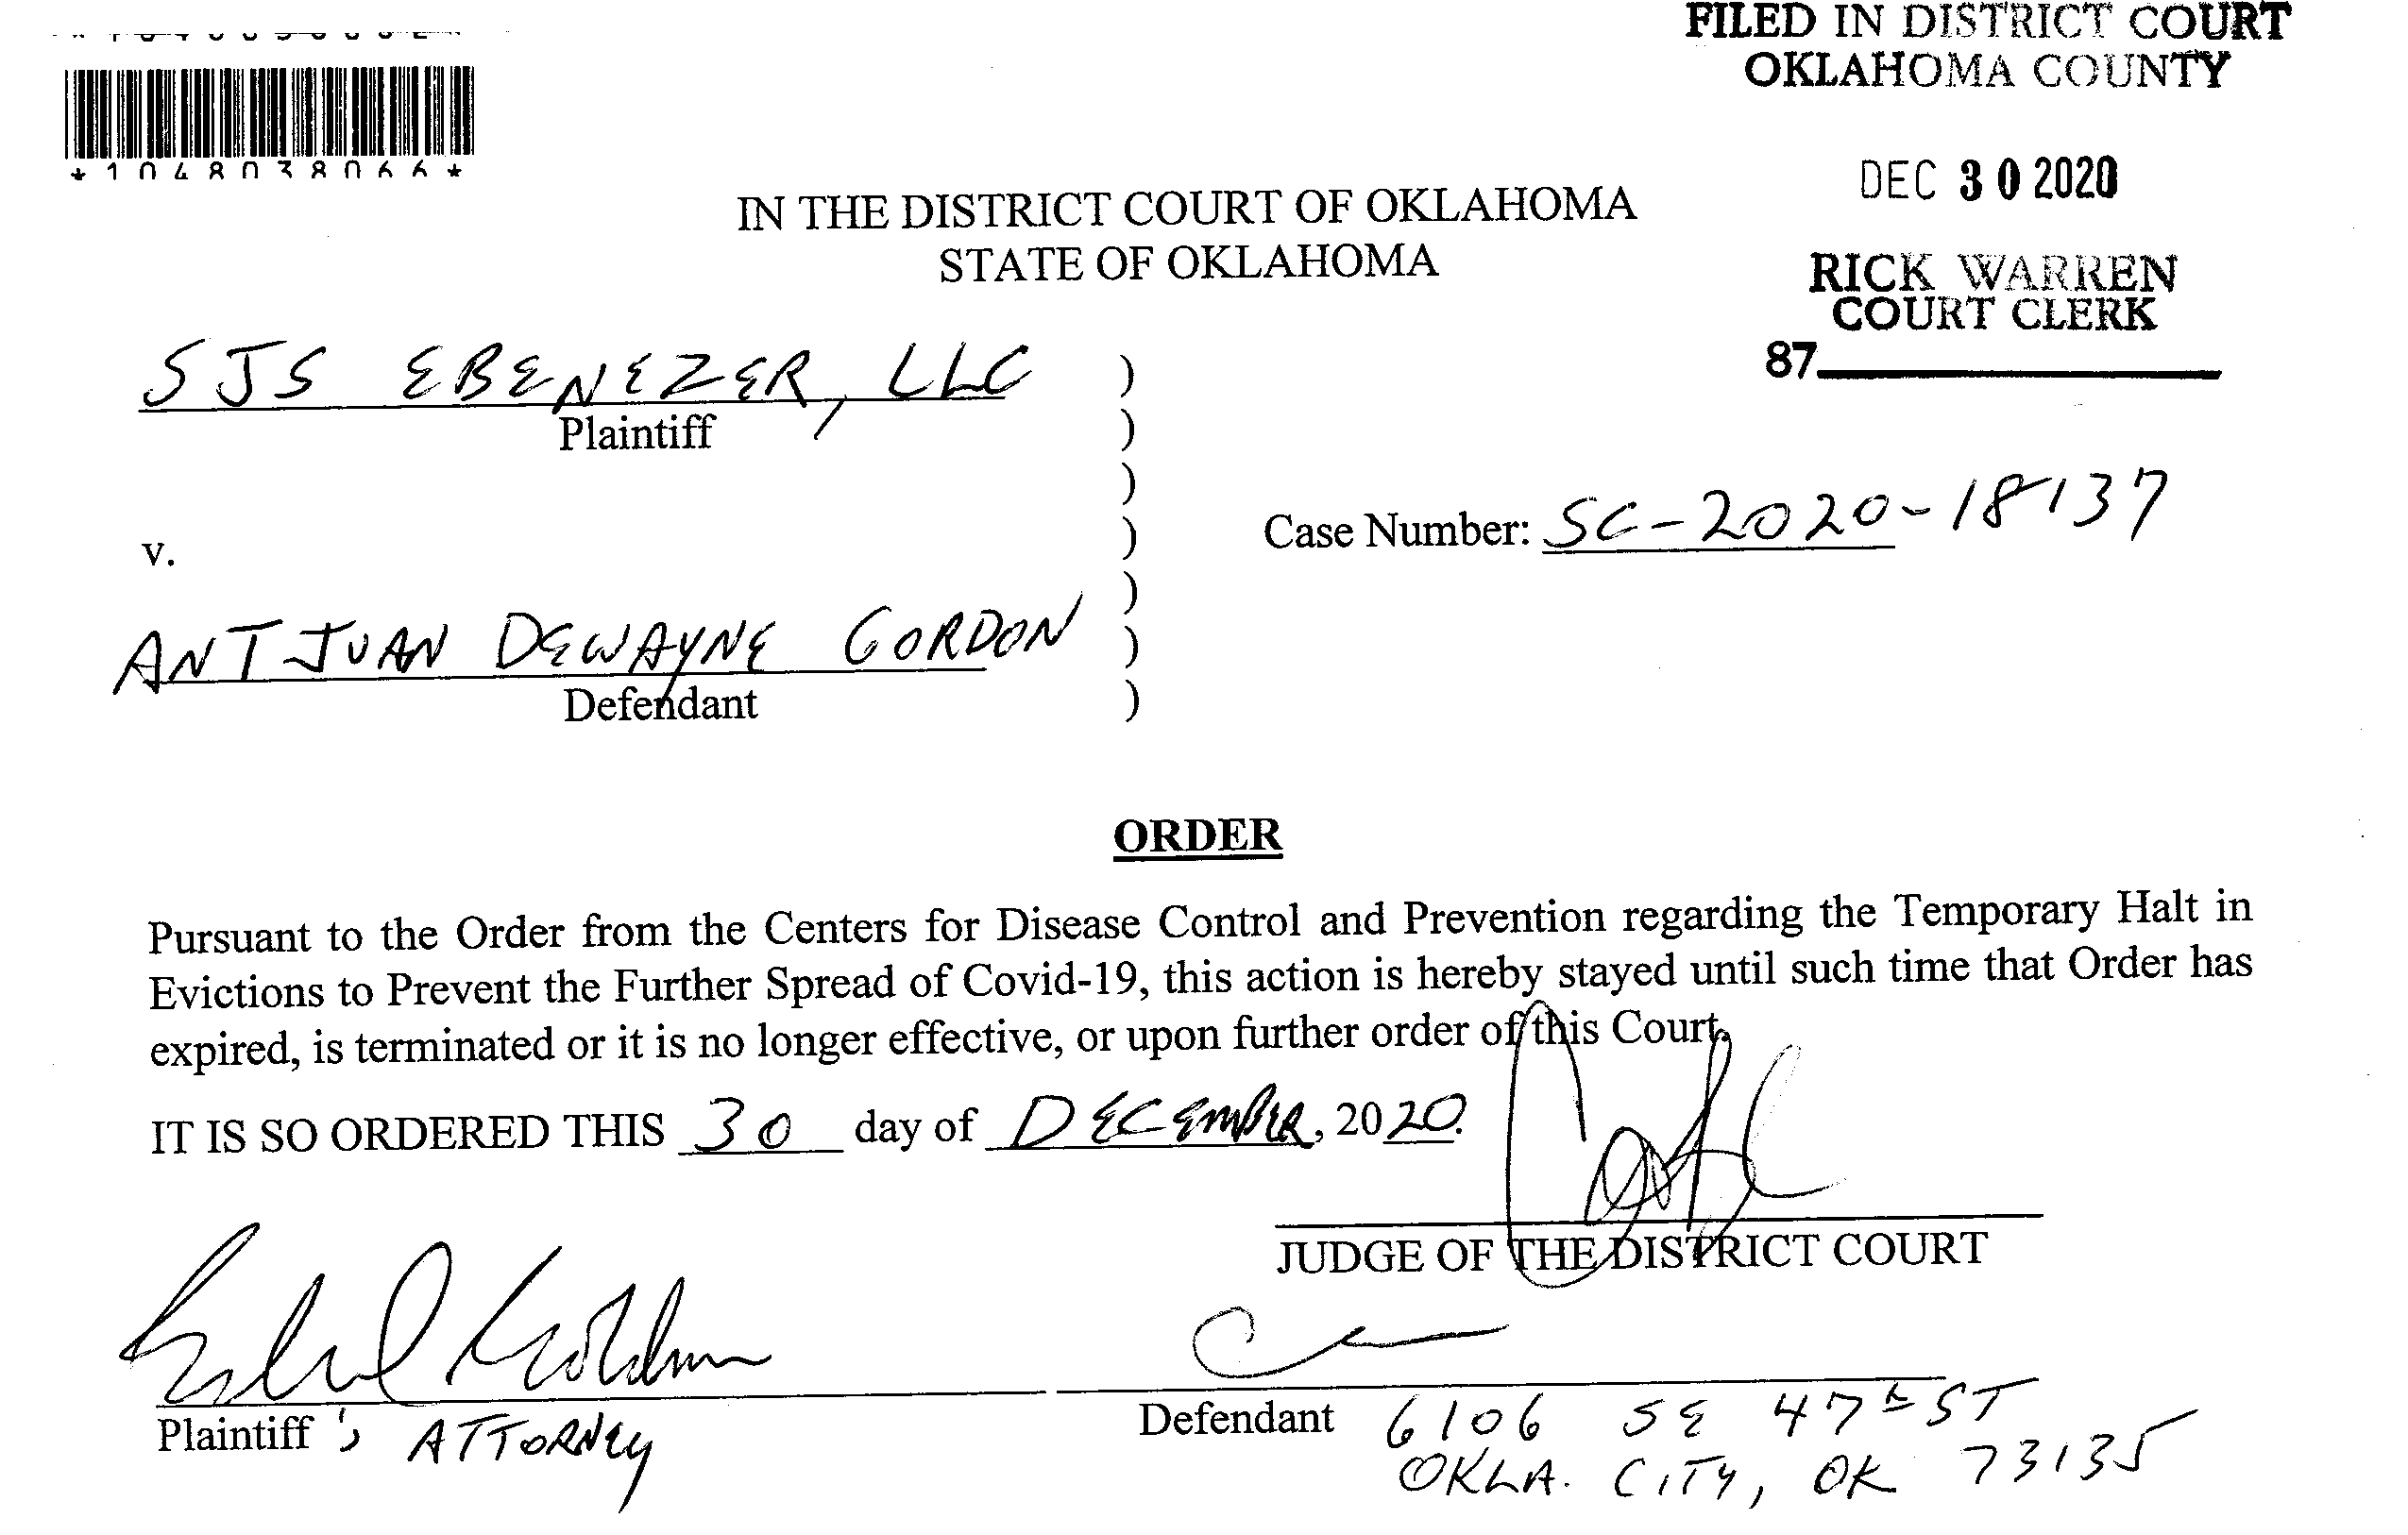 FILED IN DISTRICT COURT
OKLAHOMA COUNTY
*1048038066*
DEC 30 2020
IN THE DISTRICT COURT OF OKLAHOMA
STATE OF OKLAHOMA
RICK WARREN
COURT CLERK
87
SJS EBENEZER, LLC )
Plaintiff )
)
Case Number: SC-2020-18137
v. )
)
ANTJUAN DEWAYNE GORDON )
Defendant )
ORDER
Pursuant to the Order from the Centers for Disease Control and Prevention regarding the Temporary Halt in
Evictions to Prevent the Further Spread of Covid-19, this action is hereby stayed until such time that Order has
expired, is terminated or it is no longer effective, or upon further order of this Court.
IT IS SO ORDERED THIS 30 day of DECEMBER, 2020.
JUDGE OF THE DISTRICT COURT
Plaintiff's ATTORNEY
Defendant 6106 SE 47th ST
OKLA. CITY, OK 73135